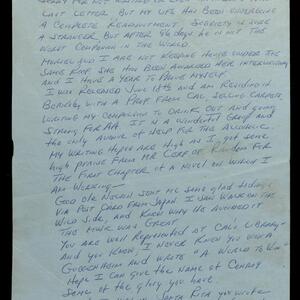 Last Letter But my Life Has Been Undergoing
A Complete Readjustment. Sobriety is sure
a Stranger But After 96 days he is not the
Worst Companion in the World.
Muriel and I are not Keeping House under the
Same Roof She Has Been Awarded Her Interlocutory
and I Have A Year to Prove Myself.
I was Released June 14th and am Residing in
Berkeley with A Prof. From Cal Selling Carpets
Writing my Compulsion to Drink Out and going
Strong For AA. It is A Wonderful Group and
the only Avenue of Help For the Alcoholic.
My Writing Hopes Are High as I got some
high Praise From Mr Corp of Random For
The First Chapter of a Novel on Which I
Am Working—
Good Ole Nelson sent me some glad tidings
Via Post Card From Japan. I saw Walk on the
Wild Side, and Know Why He Avoided it
The Music Was Great.
You are Well Represented at Cal. Library—
and You Know, I Never Knew you Won a
Guggenheim and Wrote "A World to Win"
Hope I Can give the Name of Conroy
Some of the glory you have.
Santa Rita you wrote